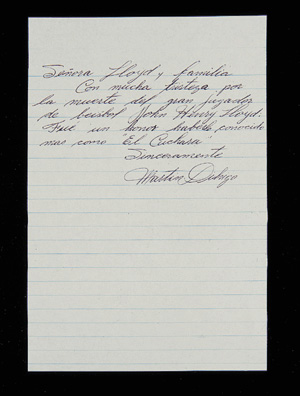 Señora Lloyd y familia
Con mucha tristeza por
la muerte del gran jugador
de beisbol John Henry Lloyd.
Fué un honor haberle conocido
mas como "El Cuchara"
Sinceramente
Martin Dihigo